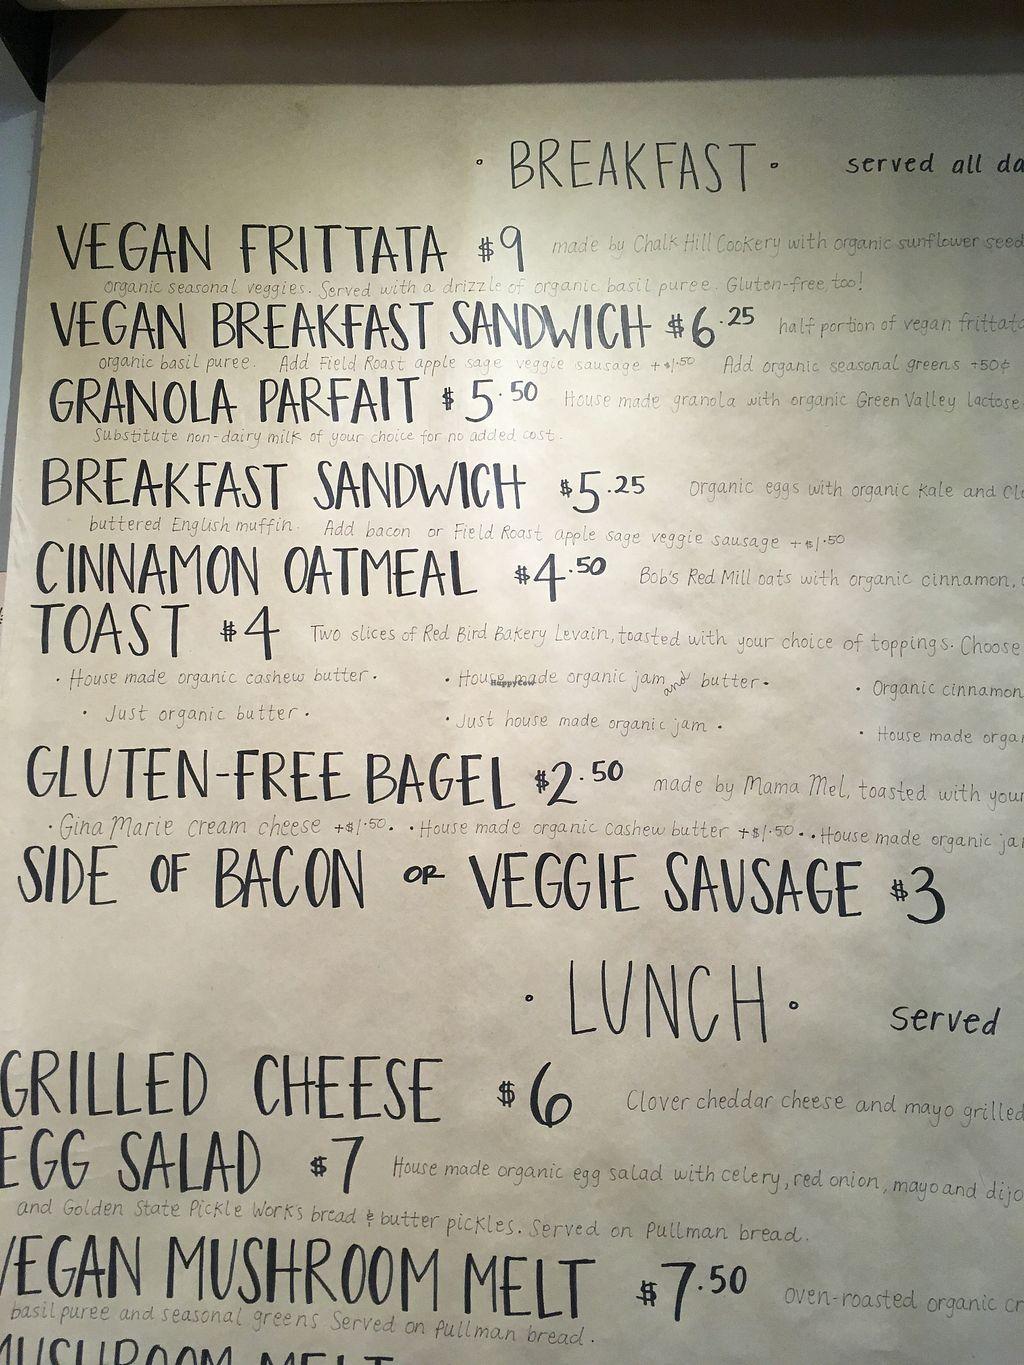 · BREAKFAST · served all da
VEGAN FRITTATA $9 made by Chalk Hill Cookery with organic sunflower seed
organic seasonal veggies. Served with a drizzle of organic basil puree. Gluten-free, too!
VEGAN BREAKFAST SANDWICH $6.25 half portion of vegan frittata
organic basil puree. Add Field Roast apple sage veggie sausage +$1.50 Add organic seasonal greens +50¢
GRANOLA PARFAIT $5.50 House made granola with organic Green Valley lactose
Substitute non-dairy milk of your choice for no added cost.
BREAKFAST SANDWICH $5.25 Organic eggs with organic kale and Clo
buttered English muffin. Add bacon or Field Roast apple sage veggie sausage +$1.50
CINNAMON OATMEAL $4.50 Bob's Red Mill oats with organic cinnamon,
TOAST $4 Two slices of Red Bird Bakery Levain, toasted with your choice of toppings. Choose
· House made organic cashew butter · · House made organic jam and butter · · Organic cinnamon
· Just organic butter · · Just house made organic jam · · House made orga
HappyCow
GLUTEN-FREE BAGEL $2.50 made by Mama Mel, toasted with your
· Gina Marie cream cheese +$1.50 · · House made organic cashew butter +$1.50 · · House made organic ja
SIDE OF BACON OR VEGGIE SAUSAGE $3
· LUNCH · served
GRILLED CHEESE $6 Clover cheddar cheese and mayo grilled
EGG SALAD $7 House made organic egg salad with celery, red onion, mayo and dijo
and Golden State Pickle Works bread & butter pickles. Served on Pullman bread.
VEGAN MUSHROOM MELT $7.50 oven-roasted organic cr
basil puree and seasonal greens Served on Pullman bread.
MUSHROOM MELT